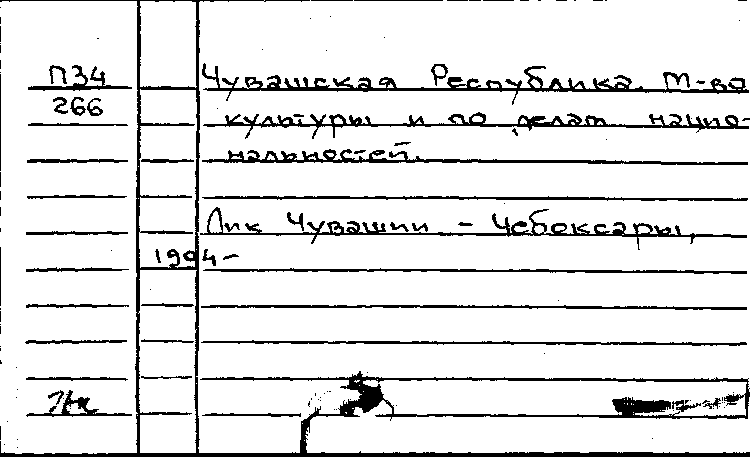 П34 Чувашская Республика. М-во
266 культуры и по делам нацио-
нальностей.
Лик Чувашии - Чебоксары,
1994-